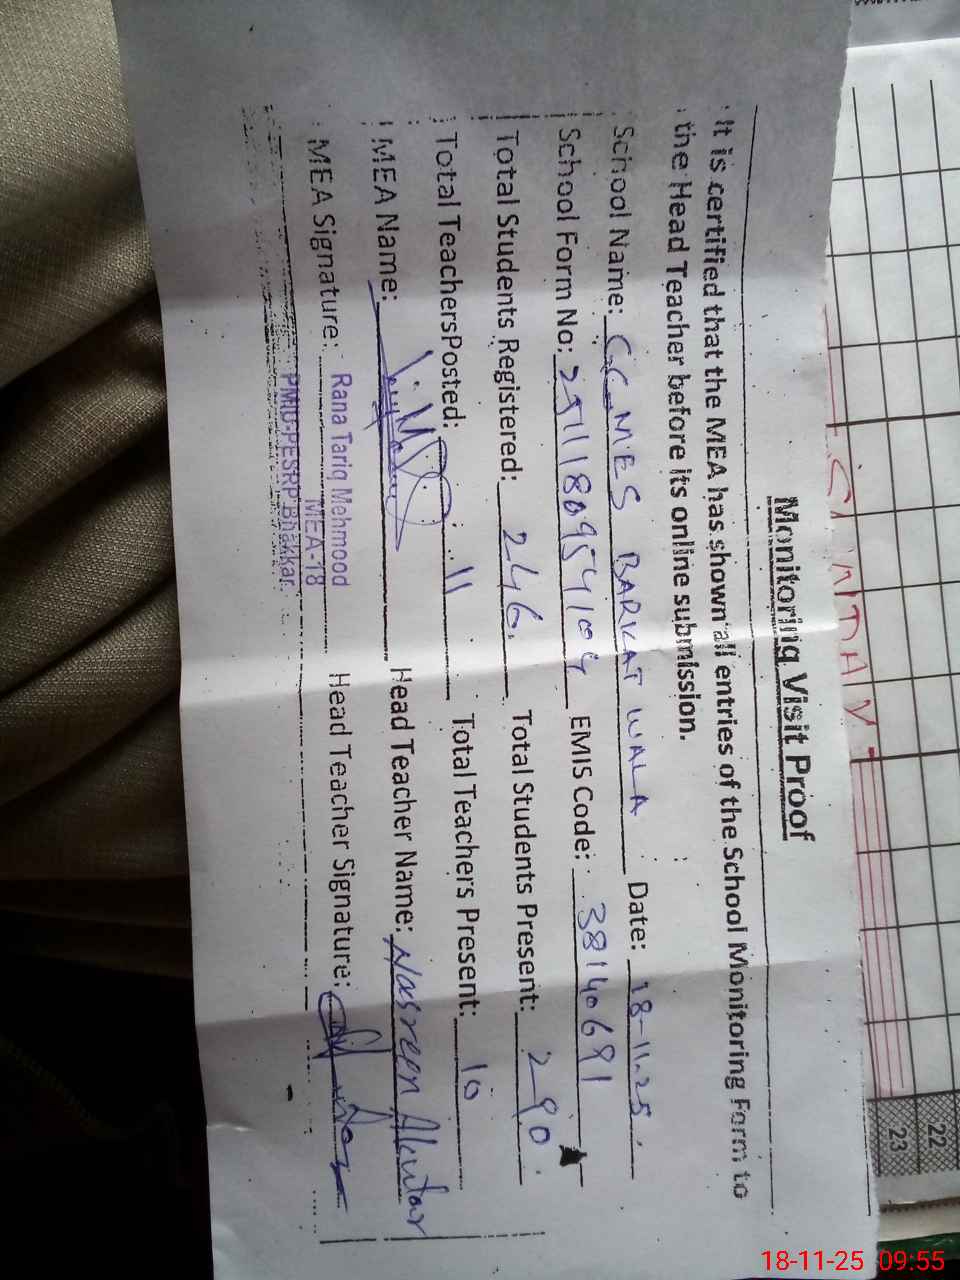 Monitoring Visit Proof
It is certified that the MEA has shown all entries of the School Monitoring Form to
the Head Teacher before its online submission.
School Name: G.G.MES BARKAT WALA Date: 18-11-25
School Form No: EMIS Code: 38140691
Total Students Registered: 246. Total Students Present:
Total TeachersPosted: 11 Total Teachers Present: 10
MEA Name: Head Teacher Name: Nasreen Akhtar
MEA Signature: Head Teacher Signature:
Rana Tariq Mehmood
MEA-18
PMIU-PESRP Bhakkar
22
23
18-11-25 09:55